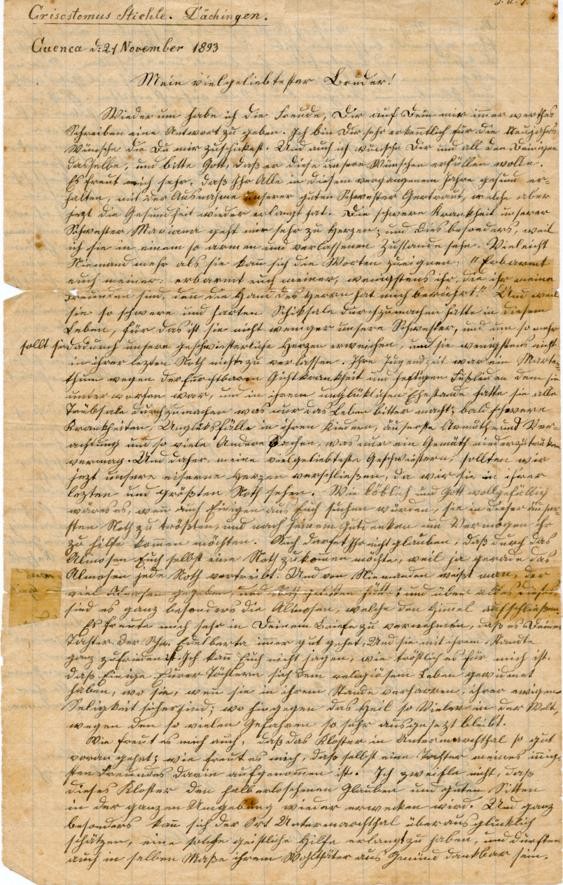 Crisostomus Stiehle. Dächingen.
Cuenca d: 21 November 1893
Mein vielgeliebtester Bruder!
Wiederum habe ich die Freude, Dir auf Dein mir immer werthes
Schreiben eine Antwort zu geben. Ich bin Dir sehr erkentlich für die Neujahrs
Wünsche die Du mir zuschickest. Und auch ich wünsche Dir und all den Deinigen
dasselbe, und bitte Gott, daß er diese unsere Wünschen erfüllen wolle.
Es freut mich sehr, daß Ihr Alle in diesem vergangenem Jahre gesund er-
halten, mit der Ausnahme unserer guten Schwester Gertraut, welche aber
jezt die Gesundheit wieder erlangt hat. Die schwere Krankheit unserer
Schwester Mariana geht mir sehr zu Herzen, und dies besonders, weil
ich sie in einem so armen und verlassenen Zustande sehe. Vieleicht
Niemand mehr als sie kan sich die Worten zueignen: "Erbarmt
euch meiner: erbarmt euch meiner, wenigstens ihr, die ihr meine
Freunden sind, den die Hand des Herrn hat mich berührt." Und weil
sie so schwere und harten Schiksale durchzumachen hatte in diesem
Leben, für das ist sie nicht weniger unsere Schwester, und um so mehr
sollt sie dadurch unsere geschwisterliche Herzen erweichen, und sie wenigstens nicht
in ihrer lezten Noth nicht zu verlassen. Ihre Jugendzeit war ein Marter-
thum wegen der furchtbaren Gichtkrankheit und heftigen
unterworfen war, und in ihrem unglüklichen Ehestande hatte sie alle
Trübsale durchzumachen was nur das Leben bitter macht; bald schwere
Krankheiten, Unglüksfälle in ihren Kindern, äuserste Armuth und Ver-
achtung und so viele Andere Sachen, was nur ein Gemüth niederzudrüken
vermag. Und daher meine vielgeliebteste Geschwistern, sollten wir
jezt unsere eiserne Herzen verschließen, da wir sie in ihrer
lezten und größten Noth sehen. Wie löblich und Gott wolgefällig
wäre es, wen auch Einigen aus Euch suchen würden, sie in dieser äuser-
sten Noth zu trösten, und nach seinem Gutdenken und Vermögen ihr
zu hilfe komen möchten. Auch derfet Ihr nicht glauben, daß durch das
Almosen Euch selbst eine Noth zukomen möchte, weil ja gerade das
Almosen jede Noth vertreibt. Und von Niemanden weißt man, der
viel Almosen gegeben, und Noth gelitten hätt; und über alles dieses
sind es ganz besonders die Almosen, welche den Himel aufschließen.
Es freute mich sehr in Deinem Briefe zu vernehmen, daß es Deiner
Tochter der Schw. Eutberta immer gut geht, Und sie mit ihrem Stande
ganz zufrieden ist. Ich kan Euch nicht sagen, wie tröstlich es für mich ist.
daß Einige Eurer Töchtern sich dem religiosem Leben gewidmet
haben, wo sie, wen sie in ihrem Stande verharren, ihrer ewigen
Seligkeit sicher sind; wo hingegen das Heil so Vieler in der Welt,
wegen den so vielen Gefahren so sehr ausgesezt bleibt.
Wie freut es mich auch, daß das Kloster in Untermarchthal so gut
voran geht; wie freut es mich, daß selbst eine Tochter meines innig-
sten Freundes darin aufgenomen ist. Ich zweifle nicht, daß
dieses Kloster den halberloschenen Glauben und guten Sitten
in der ganzen Umgebung wieder erweken wird. Und ganz
besonders kan sich der Ort Untermarchthal überaus glüklich
schätzen, eine solche geistliche Hilfe erlangt zu haben, und dürften
auch in selben Maße ihrem Wohlthäter aus Gmünd dankbar sein.